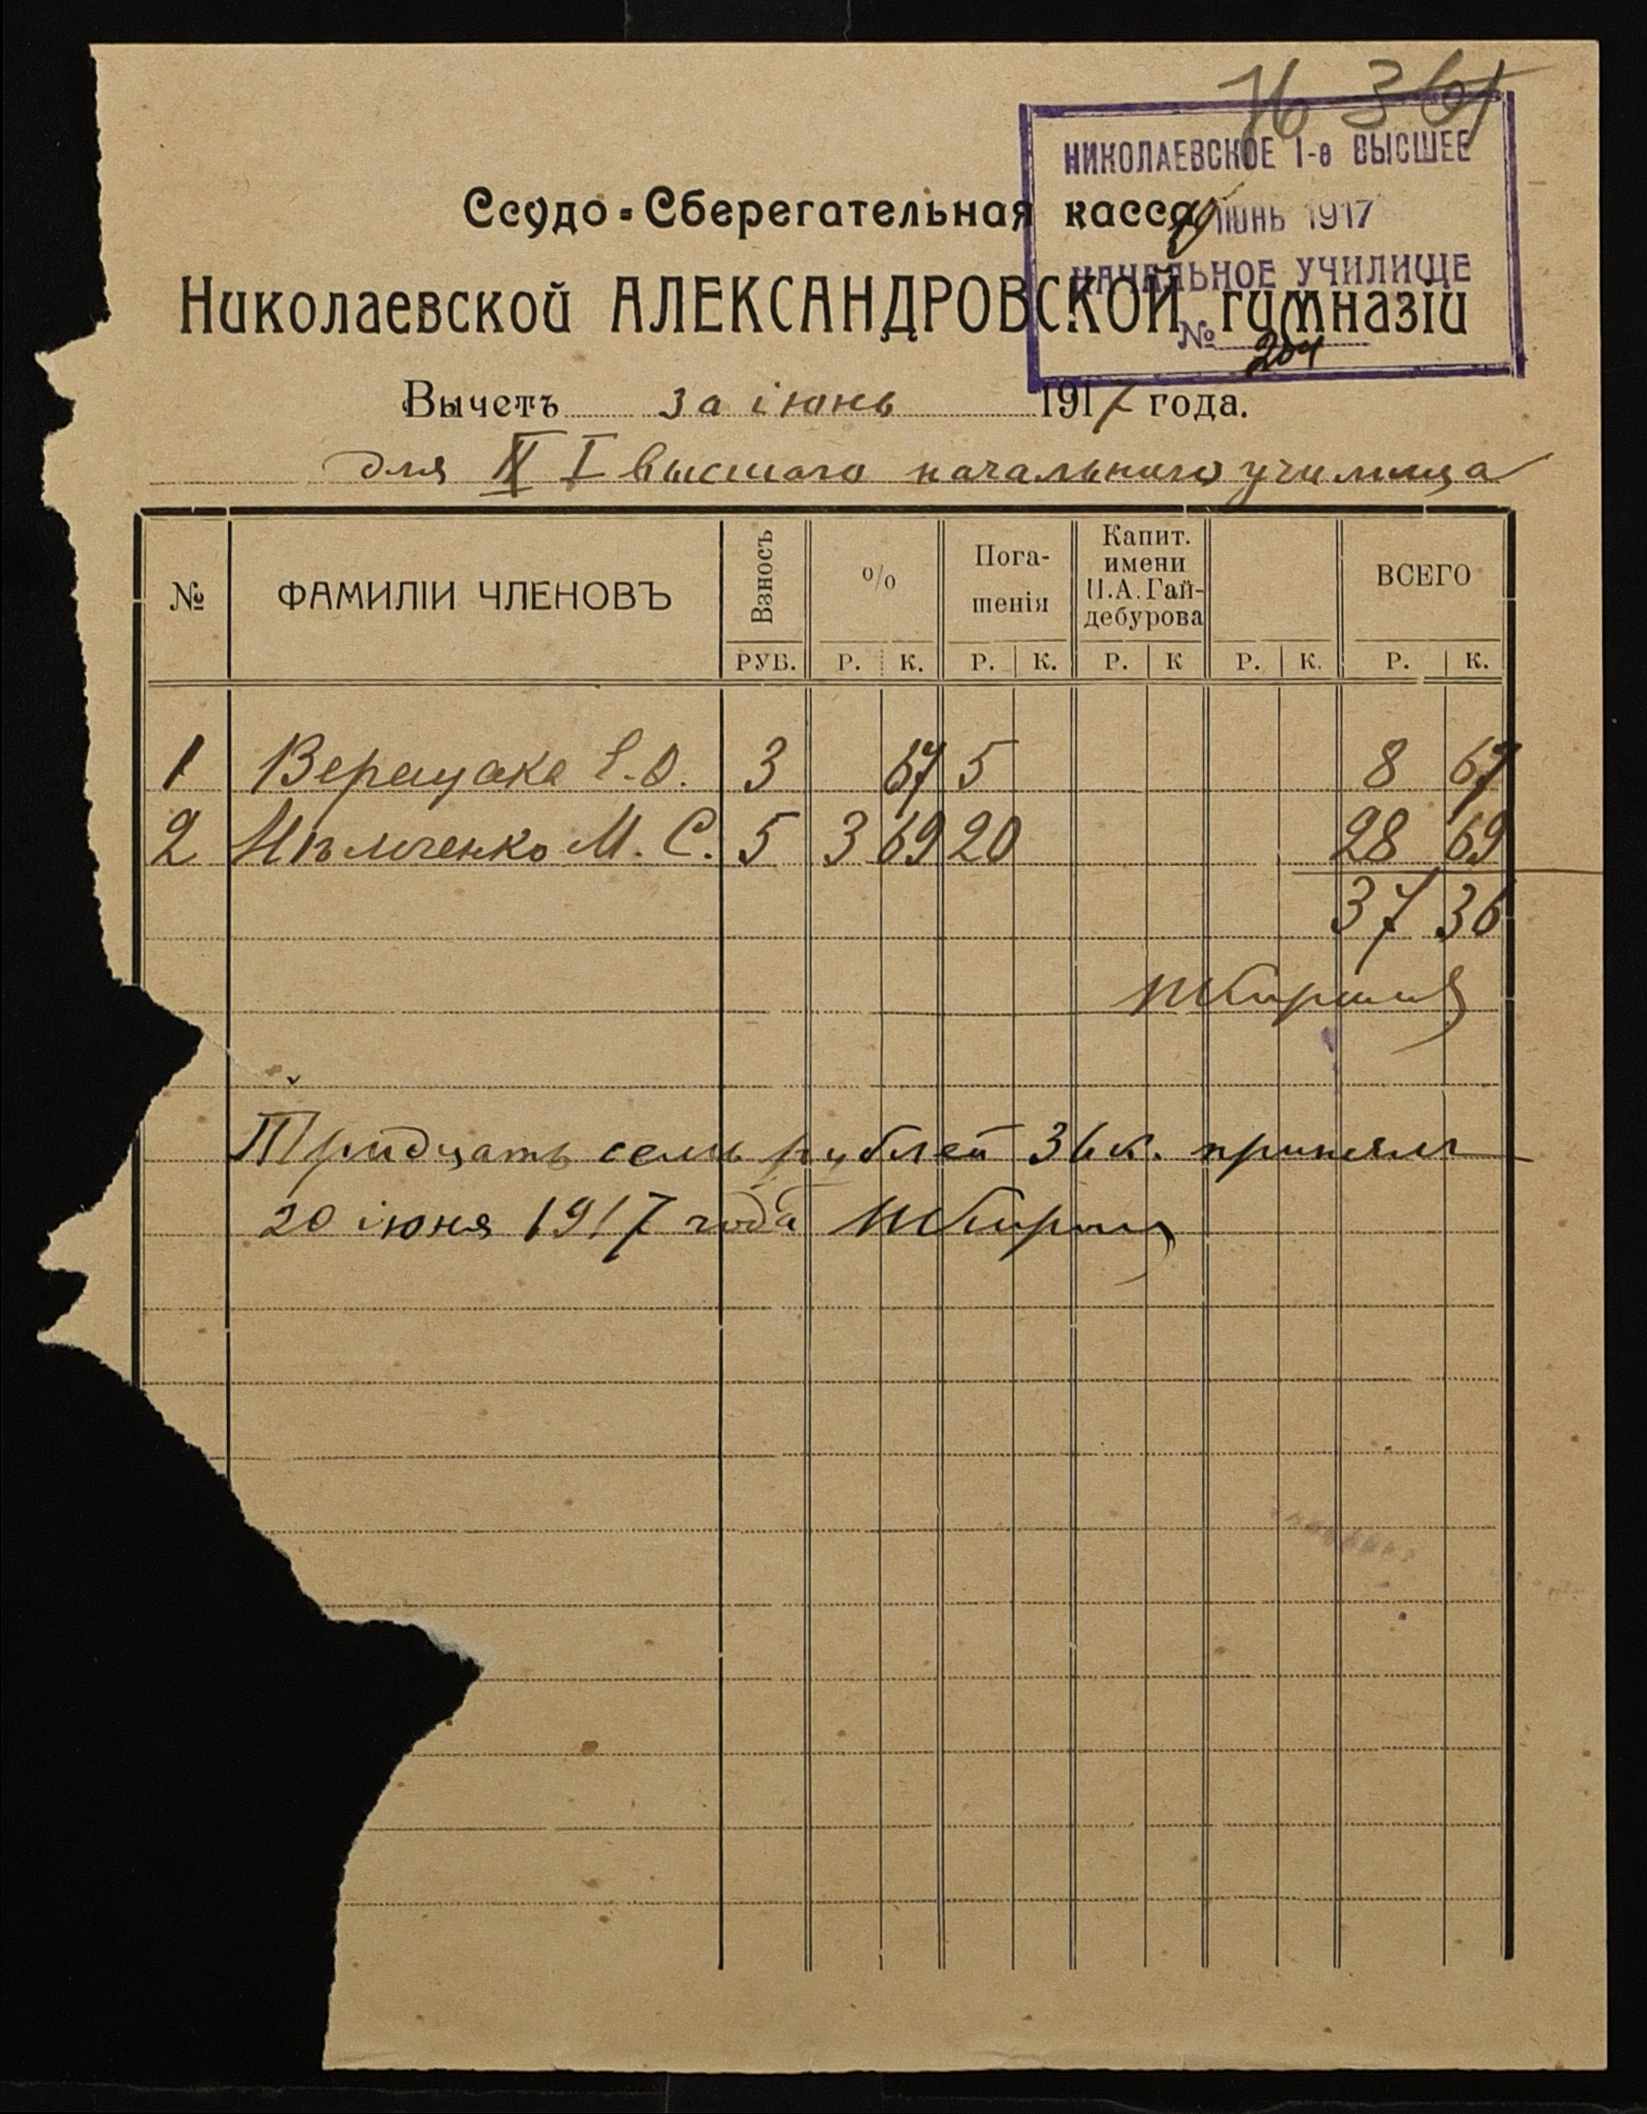 № 361
НИКОЛАЕВСКОЕ 1-е ВЫСШЕЕ
ІЮНЬ 1917
НАЧАЛЬНОЕ УЧИЛИЩЕ
№ 204
Ссудо-Сберегательная касса
Николаевской АЛЕКСАНДРОВСКОЙ гимназіи
Вычетъ за іюнь 1917 года.
для I высшаго начальнаго училища
№ ФАМИЛІИ ЧЛЕНОВЪ Взносъ % Пога-шенія Капит. имени П.А. Гай-дебурова ВСЕГО
РУБ. Р. К. Р. К. Р. К Р. К. Р. К.
1 Верещака Е. О. 3 67 5 8 67
2 Нѣмченко М. С. 5 3 69 20 28 69
37 36
Тридцать семь рублей 36 к. принялъ
20 іюня 1917 года